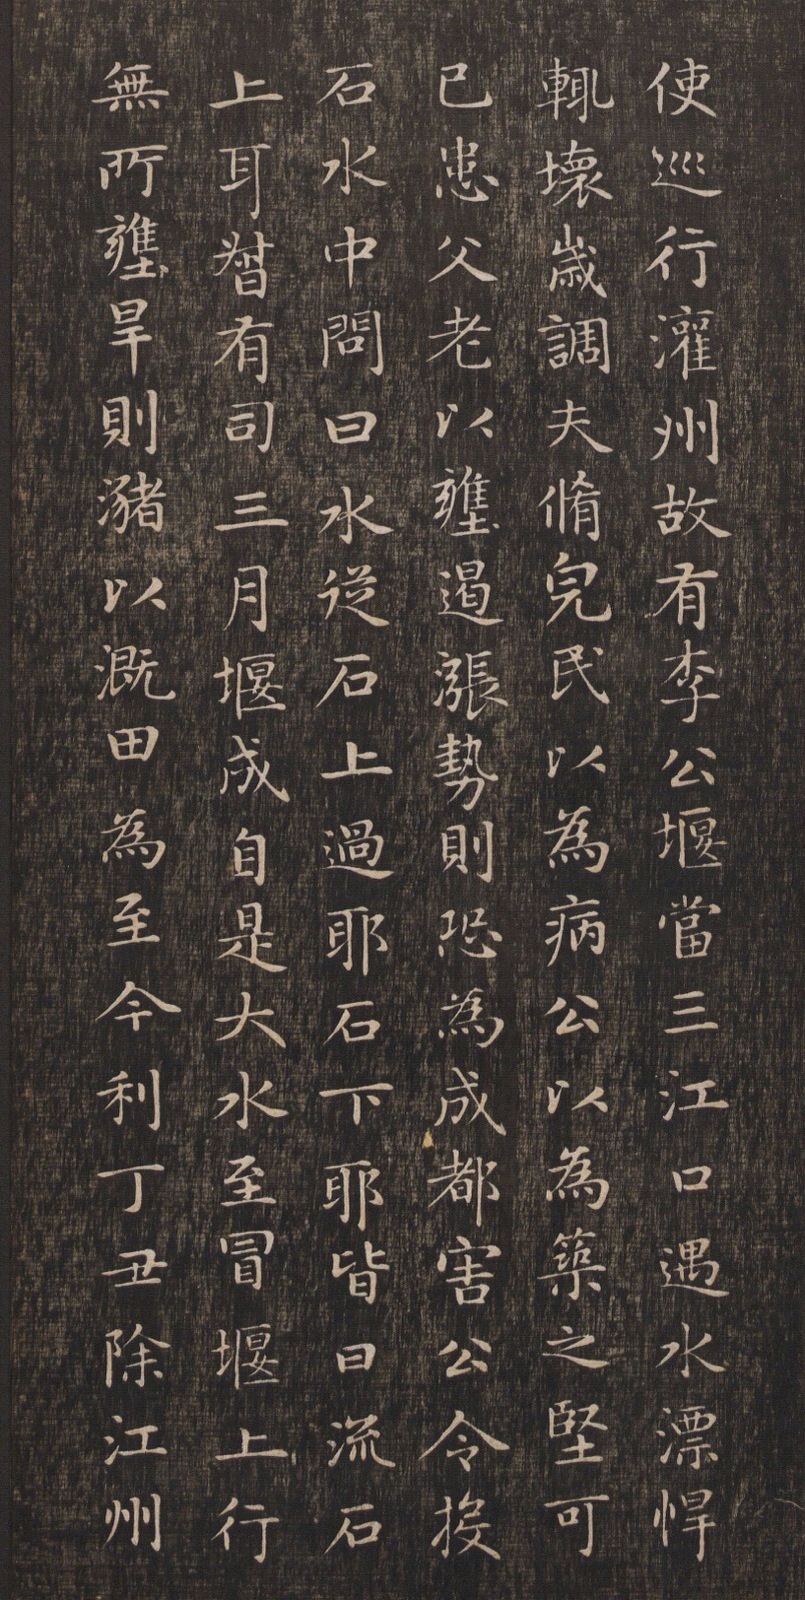 使巡行灌州故有李公堰當三江口遇水漂悍
輙壞歲調夫脩皃民以為病公以為築之堅可
已患父老以壅遏漲勢則恐為成都害公令投
石水中問曰水從石上過耶石下耶皆曰流石
上耳督有司三月堰成自是大水至冒堰上行
無所壅旱則瀦以溉田為至今利丁丑除江州